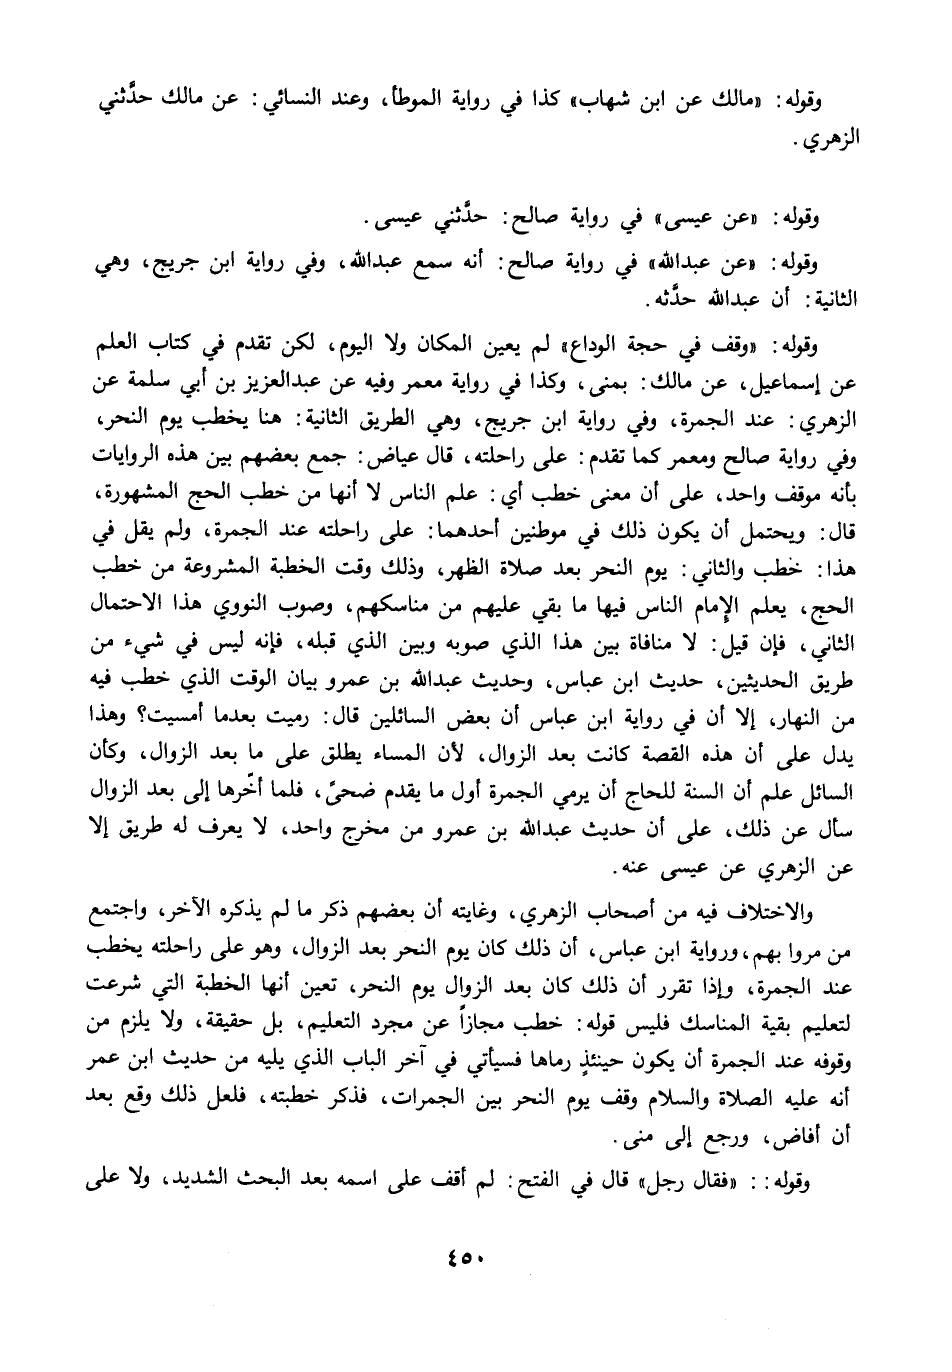 وقوله: «مالك عن ابن شهاب» كذا في رواية الموطأ، وعند النسائي: عن مالك حدَّثني
الزهري.
وقوله: «عن عيسى» في رواية صالح: حدَّثني عيسى.
وقوله: «عن عبدالله» في رواية صالح: أنه سمع عبدالله، وفي رواية ابن جريج، وهي
الثانية: أن عبدالله حدَّثه.
وقوله: «وقف في حجة الوداع» لم يعين المكان ولا اليوم، لكن تقدم في كتاب العلم
عن إسماعيل، عن مالك: بمنى، وكذا في رواية معمر وفيه عن عبدالعزيز بن أبي سلمة عن
الزهري: عند الجمرة، وفي رواية ابن جريج، وهي الطريق الثانية: هنا يخطب يوم النحر،
وفي رواية صالح ومعمر كما تقدم: على راحلته، قال عياض: جمع بعضهم بين هذه الروايات
بأنه موقف واحد، على أن معنى خطب أي: علم الناس لا أنها من خطب الحج المشهورة،
قال: ويحتمل أن يكون ذلك في موطنين أحدهما: على راحلته عند الجمرة، ولم يقل في
هذا: خطب والثاني: يوم النحر بعد صلاة الظهر، وذلك وقت الخطبة المشروعة من خطب
الحج، يعلم الإمام الناس فيها ما بقي عليهم من مناسكهم، وصوب النووي هذا الاحتمال
الثاني، فإن قيل: لا منافاة بين هذا الذي صوبه وبين الذي قبله، فإنه ليس في شيء من
طريق الحديثين، حديث ابن عباس، وحديث عبدالله بن عمرو بيان الوقت الذي خطب فيه
من النهار، إلا أن في رواية ابن عباس أن بعض السائلين قال: رميت بعدما أمسيت؟ وهذا
يدل على أن هذه القصة كانت بعد الزوال، لأن المساء يطلق على ما بعد الزوال، وكأن
السائل علم أن السنة للحاج أن يرمي الجمرة أول ما يقدم ضحىً، فلما أخّرها إلى بعد الزوال
سأل عن ذلك، على أن حديث عبدالله بن عمرو من مخرج واحد، لا يعرف له طريق إلا
عن الزهري عن عيسى عنه.
والاختلاف فيه من أصحاب الزهري، وغايته أن بعضهم ذكر ما لم يذكره الآخر، واجتمع
من مروا بهم، ورواية ابن عباس، أن ذلك كان يوم النحر بعد الزوال، وهو على راحلته يخطب
عند الجمرة، وإذا تقرر أن ذلك كان بعد الزوال يوم النحر، تعين أنها الخطبة التي شرعت
لتعليم بقية المناسك فليس قوله: خطب مجازاً عن مجرد التعليم، بل حقيقة، ولا يلزم من
وقوفه عند الجمرة أن يكون حينئذٍ رماها فسيأتي في آخر الباب الذي يليه من حديث ابن عمر
أنه عليه الصلاة والسلام وقف يوم النحر بين الجمرات، فذكر خطبته، فلعل ذلك وقع بعد
أن أفاض، ورجع إلى منى.
وقوله: : «فقال رجل» قال في الفتح: لم أقف على اسمه بعد البحث الشديد، ولا على
٤٥٠